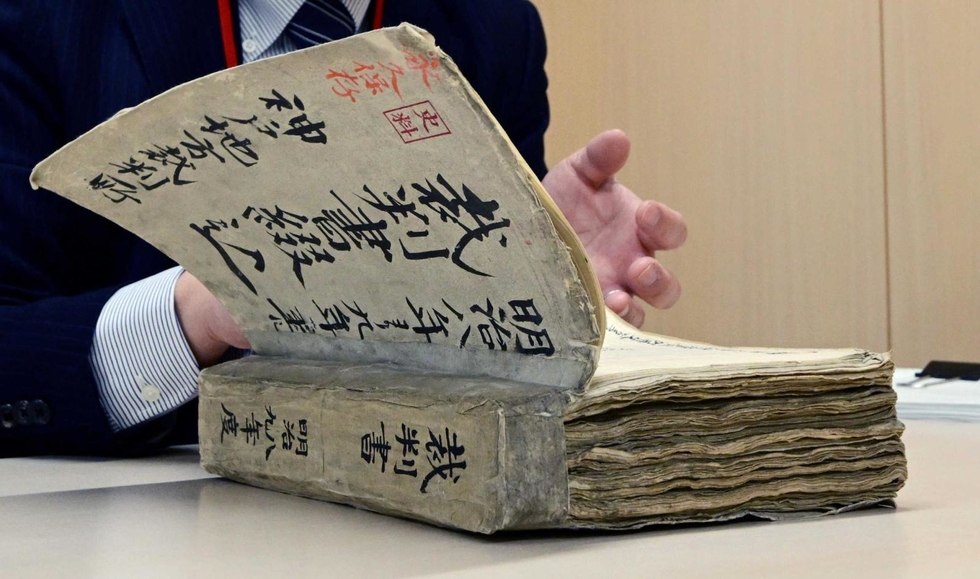 明治八年 九年
裁判書綴込
史料
永久保存
神戸地方裁判所
裁判書
明治八九年度